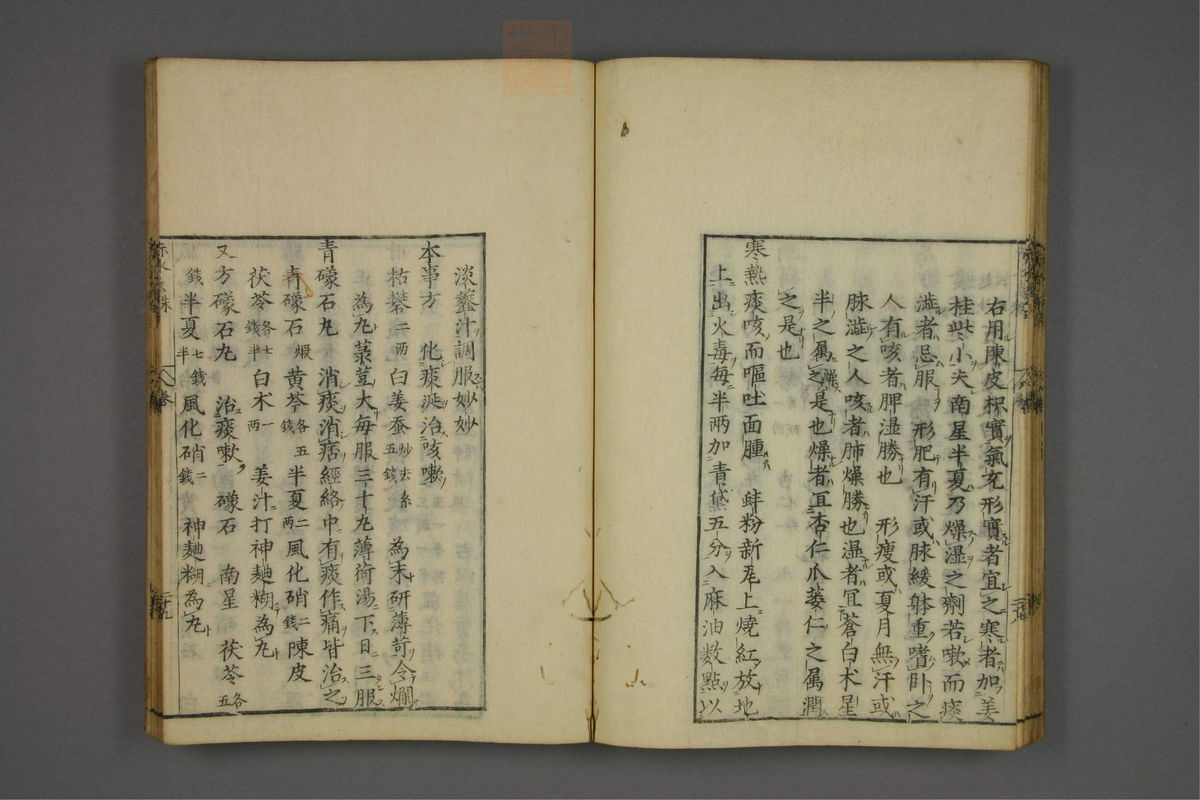 右用陳皮枳實氣充形實者宜之寒者加姜
桂此小夫南星半夏乃燥湿之劑若嗽而痰
澁者忌服　形肥有汗或脉緩躰重嗜卧之
人有咳者脾湿勝也　形瘦或夏月無汗或
脉澁之人咳者肺燥勝也湿者宜蒼白朮星
半之属燥之是也燥者宜杏仁瓜蔞仁之属潤
之是也
寒熱痰咳而嘔吐面腫　蚌粉新瓦上燒紅放地
上出火毒每半兩加青黛五分入麻油数點以
淡虀汁調服妙妙
本事方　化痰涎治咳嗽
枯礬二兩白姜蚕炒去糸五錢　為末研薄荷令爛
為丸菉荳大每服三十丸薄荷湯下日三服
青礞石丸　消痰消痞經絡中有痰作痛皆治之
青礞石煆黄芩各五錢半夏二兩風化硝二錢陳皮
茯苓各七錢半白朮一兩　姜汁打神麯糊為丸
又方礞石丸　治痰嗽　礞石　南星　茯苓各五
錢半夏七錢半風化硝二錢　神麯糊為丸